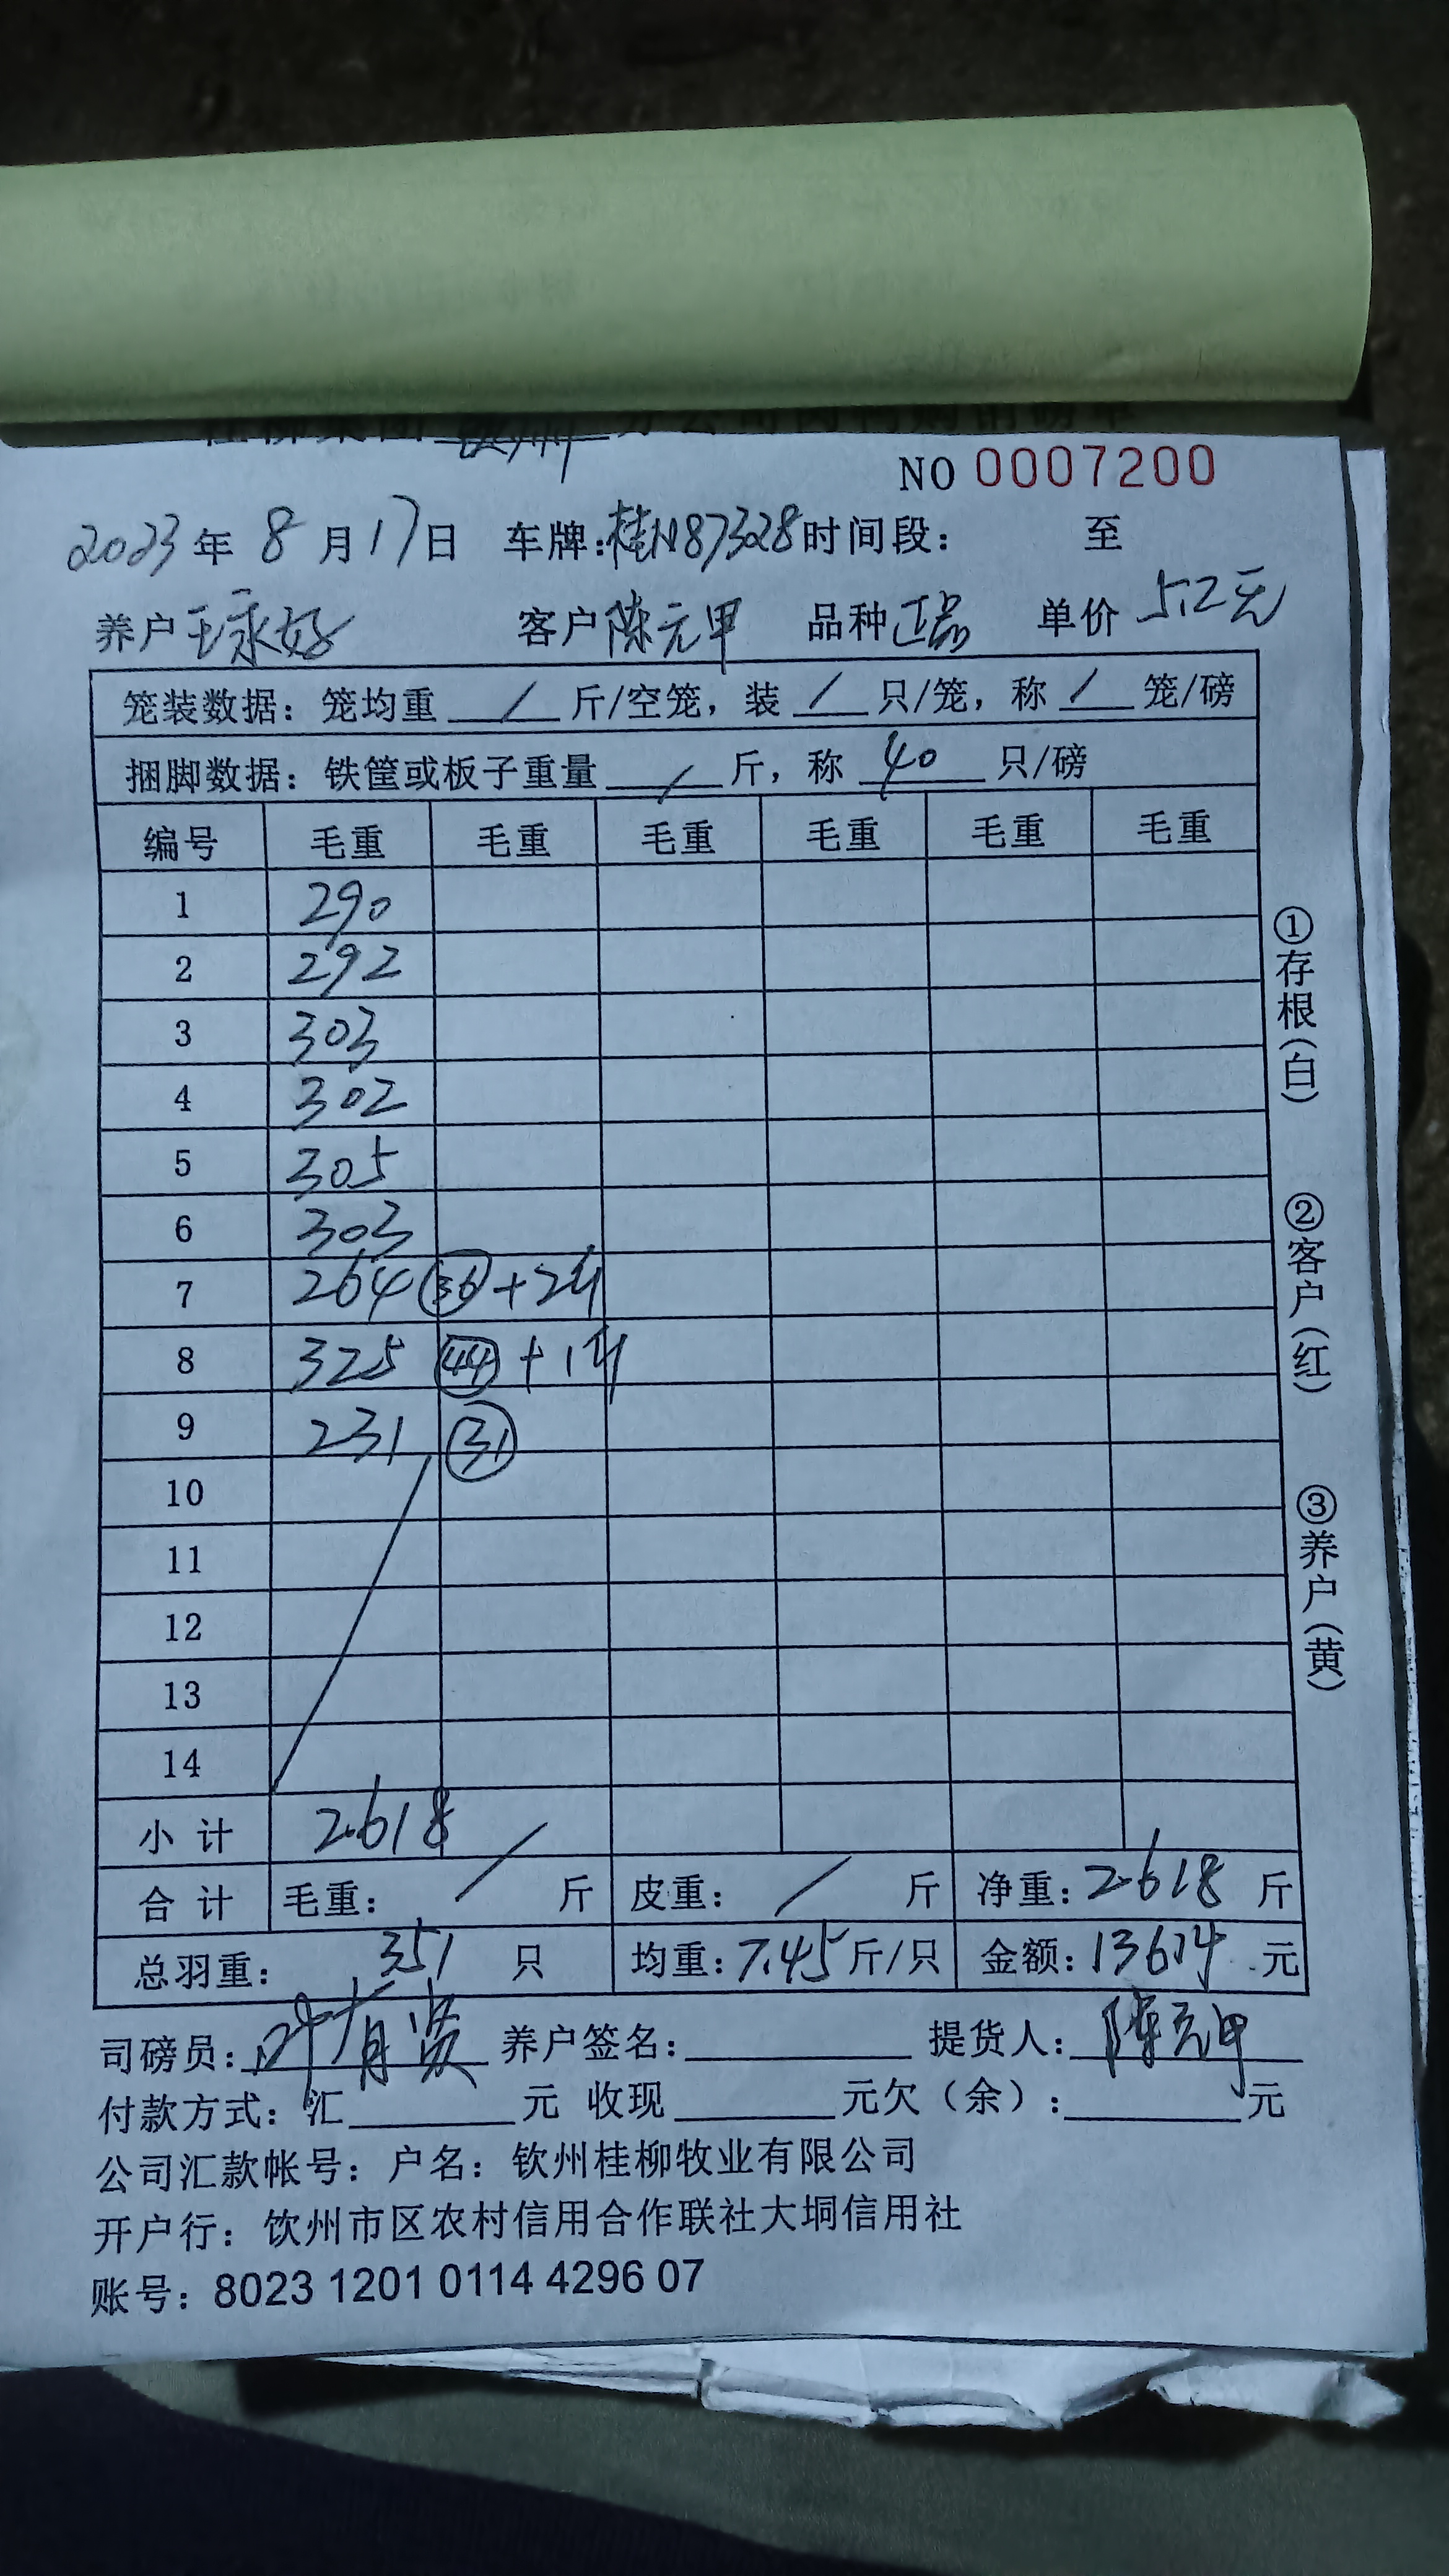 钦州
NO 0007200
2023年 8月17日 车牌:桂N87328时间段: 至
养户王永好 客户陈元甲 品种正品 单价5.2元
笼装数据: 笼均重 / 斤/空笼, 装 / 只/笼, 称 / 笼/磅
捆脚数据: 铁筐或板子重量 / 斤, 称 40 只/磅
编号 毛重 毛重 毛重 毛重 毛重 毛重
1 290
2 292
3 303
4 302
5 305
6 303
7 264 36 +2斤
8 325 44 +1斤
9 231 31
10
11
12
13
14
小计 2618
合计 毛重: / 斤 皮重: / 斤 净重: 2618 斤
总羽重: 351 只 均重: 7.45斤/只 金额: 13614 元
司磅员: 叶有贤 养户签名: 提货人: 陈元甲
付款方式: 汇 元 收现 元欠(余): 元
公司汇款帐号: 户名: 钦州桂柳牧业有限公司
开户行: 饮州市区农村信用合作联社大垌信用社
账号: 8023 1201 0114 4296 07
①存根(白)
②客户(红)
③养户(黄)